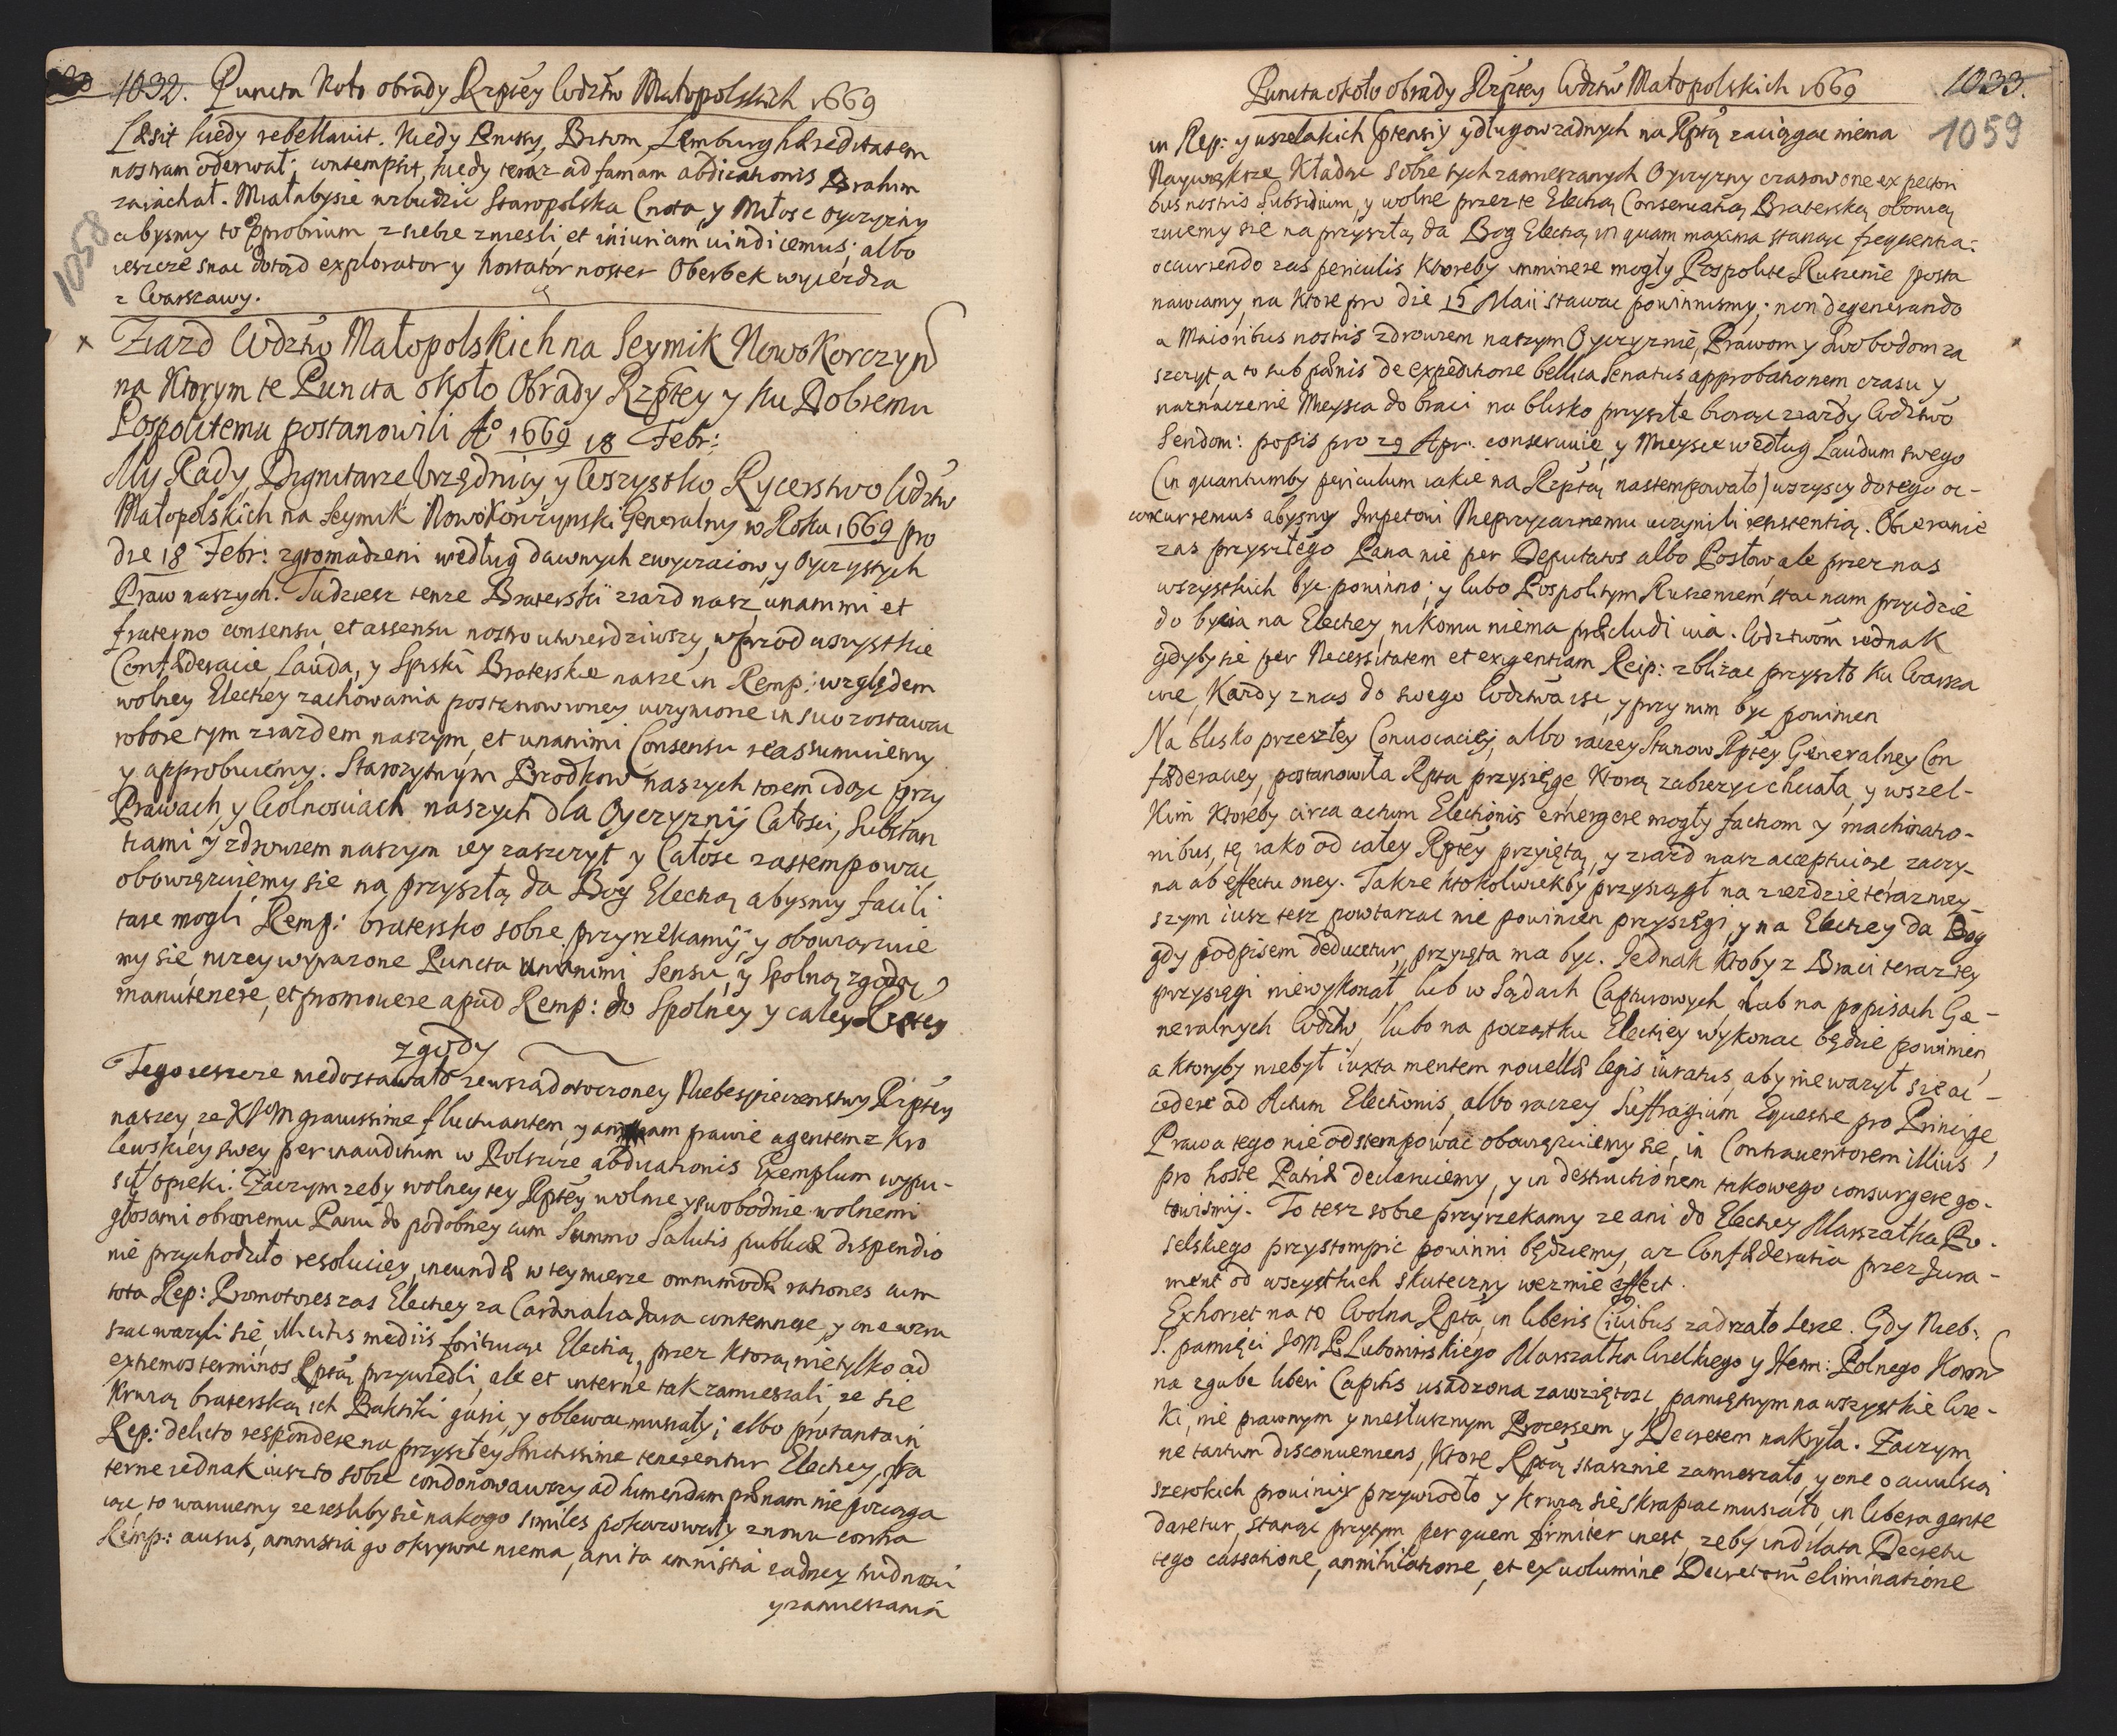 1032. Puncta Koło obrady Rzptey Wdztw Małopolskich 1669
Læsit kiedy rebellavit. Kiedy Prussy, Bitom, Lemburg hæreditatem
nostram oderwał; contempsit, kiedy teraz ad famam abdicationis Brahm
zaiachał. Miałabysie wzbudzic Staropolska Cnota, y Miłosc oyczyzny
abysmy to opprobrium z siebie zniesli, et iniuriam uindicemus; albo
ieszcze snac dotąd explorator y hortator noster Oberbek wyiezdza
z Warszawy.
1058
Ziazd Wdztw Małopolskich na Seymik NowoKorczyn
na Ktorym te Puncta około Obrady Rzptey y ku Dobremu
Pospolitemu postanowili Ao 1669 18 Febr:
My Rady, Dignitarze, Vrzędnicy y Wszystko Rycerstwo Wdztw
Małopolskich na Seymik NowoKorczynski Generalny w Roku 1669 pro
die 18 Febr: zgromadzeni według dawnych zwyczaiow, y Oyczystych
Praw naszych. Tudziesz tenze Braterski ziazd nasz unanimi et
fraterno consensu, et assensu nostro utwierdziwszy, wprzod wszystkie
Confæderacie, Lauda, y Spiski Braterskie nasze in Remp: względem
wolney Electiey zachowania postanowioney uczynione in suo zostawu
robore tym ziazdem naszym, et unanimi Consensu reassumuiemy
y approbuiemy. Starozytnym Przodkow naszych torem idąc przy
Prawach, y Wolnosciach naszych dla Oyczyznij Całosci, Substan
tiami y zdrowiem naszym iey zaszczyt y Całosc zastempowac
obowięzuiemy się na przyszłą da Bog Electią abysmy facili
tare mogli Remp: bratersko sobie przyrzekamy, y obowiązuie
my się nizey wyrazone Puncta unanimi Sensu, y Spolną zgodą
manutenere, et promouere apud Remp: do Spolney y całey Rzptey
zgody
Tego ieszcze niedostawało zewsząd otoczoney Niebespieczenstwy Rzptey
naszey, ze KJM grauissime fluctuantem, y animam prawie agentem z Kro
lewskiey swey per inauditum w Polszcze abdicationis Exemplum wypu-
scił opieki. Zaczym zeby wolney tey Rptey wolnie y swobodnie wolnemi
głosami obronemu Panu do podobney cum Summo Salutis publicæ dispendio
nie przychodziło resolutiey, ineundæ w tey mierze omnimodæ rationes cum
tota Rep: Promotores zas Electiey za Cardinalia Iura contemnere, y one wzru
szac wazyli się, illicitis mediis forituiąc Electią, przez Ktorą nietylko ad
extremos terminos Rptą przywiedli, ale et interne tak zamieszali, ze się
Krwią braterską ich Praktiki gasic, y oblewac musiały; albo pro tanto in
Rep: delicto respondere na przyszłey strictissime tenerentur Electiey, fra
terne iednak iuszto sobie condonowawszy ad luendam pœnam nie pociąga
iąc, to waruiemy ze iesliby się na kogo similes pokazowały znowu contra
Remp: ausus, amnistia go okrywac niema, ani ta amnistia zadney trudnosci
y zamieszania
Puncta około obrady Rzptey Wdztw Małopolskich 1669 1033.
1059
in Rep: y wszelakich ptensiy y długow zadnych na Rptą zaciągac niema
Naywiększe Kładąc Sobie tych zamieszanych Oyczyzny czasow one ex pectori
bus nostris Subsidium, y wolne przez te Electią Conseruatią Braterską obowią
zuiemy się na przyszłą da Bog Electią in quam maxima stanąc frequentia:
occurrendo zas periculis Ktoreby imminere mogły Pospolite Ruszenie posta
nawiamy, na Ktore pro die 15 Maii stawac powinnismy; non degenerando
a Maioribus nostris zdrowiem naszym Oyczyznie, Prawom y Swobodom za
szczyt, a to sub pœnis de expeditione bellica Senatus approbationem czasu y
naznaczenie Mieysca do braci na blisko przyszłe biorąc ziazdy Wdztwo
Sendom: popis pro 29 Apr. conseruuie, y Mieysce według Laudum swego
(in quantumby periculum iakie na Rzptą nastempowało) wszyscy do tego oc-
curremus abysmy Impetowi Nieprzyiacznemu uczynili resistentią. Obieranie
zas przyszłego Pana nie per Deputatos albo Posłow ale przez nas
wszystkich byc powinno; y lubo Pospolitym Ruszeniem stac nam przydzie
do bycia na Electiey, nikomu niema præcludi via. Wdztwom iednak
gdyby się per Necessitatem et exigentiam Reip: zblizac przyszło ku Warsza
wie, Kazdy z nas do swego Wdztwa isc, y przy nim byc powinien
Na blisko przeszłey Conuocaciej, albo raczey Stanow Rptey Generalney Con
fæderaciey, postanowiła Rpta przysięgę, Ktorą zabiezyc chciała, y wszel-
Kim Ktoreby circa actum Electionis emergere mogły factiom y machinatio-
nibus, tę iako od całey Rptey przyiętą, y ziazd nasz acceptuiąc zaczy-
na ab effectu oney. Takze ktokolwiekby przysiągł na zjezdzie terazniey-
szym iusz tesz powtarzac nie powinien przysięgi, y na Electiey da Bog
gdy podpisem deducetur, przyięta ma byc. Jednak ktoby z Braci teraz tey
przysięgi niewykonał, lub w Sądach Capturowych, lub na popisach Ge-
neralnych Wdztw, lubo na początku Electiey wykonac będzie powinien,
a Ktoryby niebył iuxta mentem nouellæ legis iuratus, aby nie wazył się ac-
cedere ad Actum Electionis, albo raczey Suffragium Equestre pro Principe
Prawa tego nie odstempowac obowięzuiemy się, in Contrauentorem illius
pro hoste Patriæ declaruiemy, y in destructionem takowego consurgere go-
towismy. To tesz sobie przyrzekamy ze ani do Electiey Marszałka Po-
selskiego przystompic powinni będziemy, az Confæderatia przez Jura-
ment od wszystkich skuteczny wezmie effect.
Exhorret na to Wolna Rpta, in liberis Ciuibus zadrzało serce. Gdy Nieb:
S. pamięci JM P. Lubomirskiego Marszałka Wielkiego y Hetm: Polnego Koron
na zgubę liberi Capitis usadzona zawziętosc, pamiętnym na wszystkie Wie-
ki, nie prawnym y niesłusznym Processem y Decretem nakryła. Zaczym
ne tantum disconueniens, Ktore Rptą strasznie zamieszało, y one o avulsią
szerokich prouinciy przywiodło y krwią się skrapiac musiało, in libera gente
daretur, stanąc przytym per quem firmiter inest, zeby indilata Decretu
tego cassatione, annihilatione, et ex uolumine Decretorum eliminatione